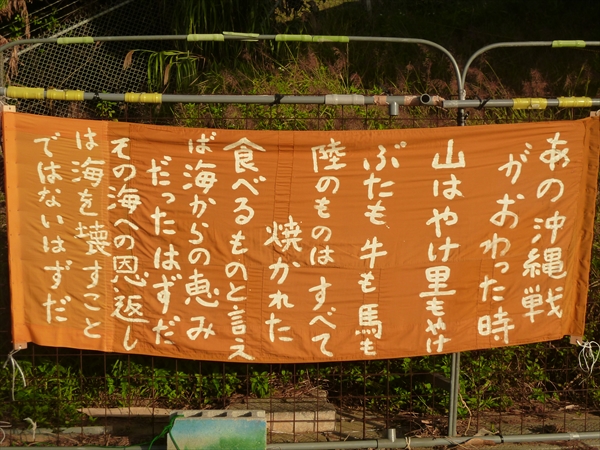 あの沖縄戦
がおわった時
山はやけ里もやけ
ぶたも牛も馬も
陸のものはすべて
焼かれた
食べるものと言え
ば海からの恵み
だったはずだ
その海への恩返し
は海を壊すこと
ではないはずだ